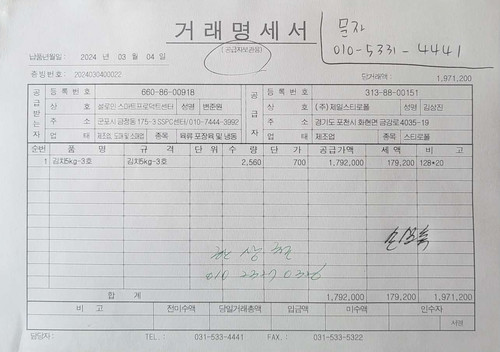 거래명세서
(공급자보관용)
문자
010-5331-4441
납품년월일: 2024 년 03 월 04 일
증빙번호: 2024030400022
당거래액: 1,971,200
공급받는자 등록번호 660-86-00918
상호 성명 변준원
주소 군포시 금정동 175-3 SSPC센터/010-7444-3992
업태 종목 육류 포장육 및 냉동
공급자 등록번호 313-88-00151
상호 (주)제일스티로폼 성명 김삼진
주소 경기도 포천시 화현면 금강로 4035-19
업태 제조업 종목 스티로폼
순번 품명 규격 단위 수량 단가 공급가액 세액 비고
1 김치5kg-3호 김치5kg-3호 2,560 700 1,792,000 179,200 128*20
010
합계 1,792,000 179,200 1,971,200
비고 전미수액 당일거래총액 입금액 미수액 인수자
서명
담당자: TEL.: 031-533-4441 FAX.: 031-533-5322